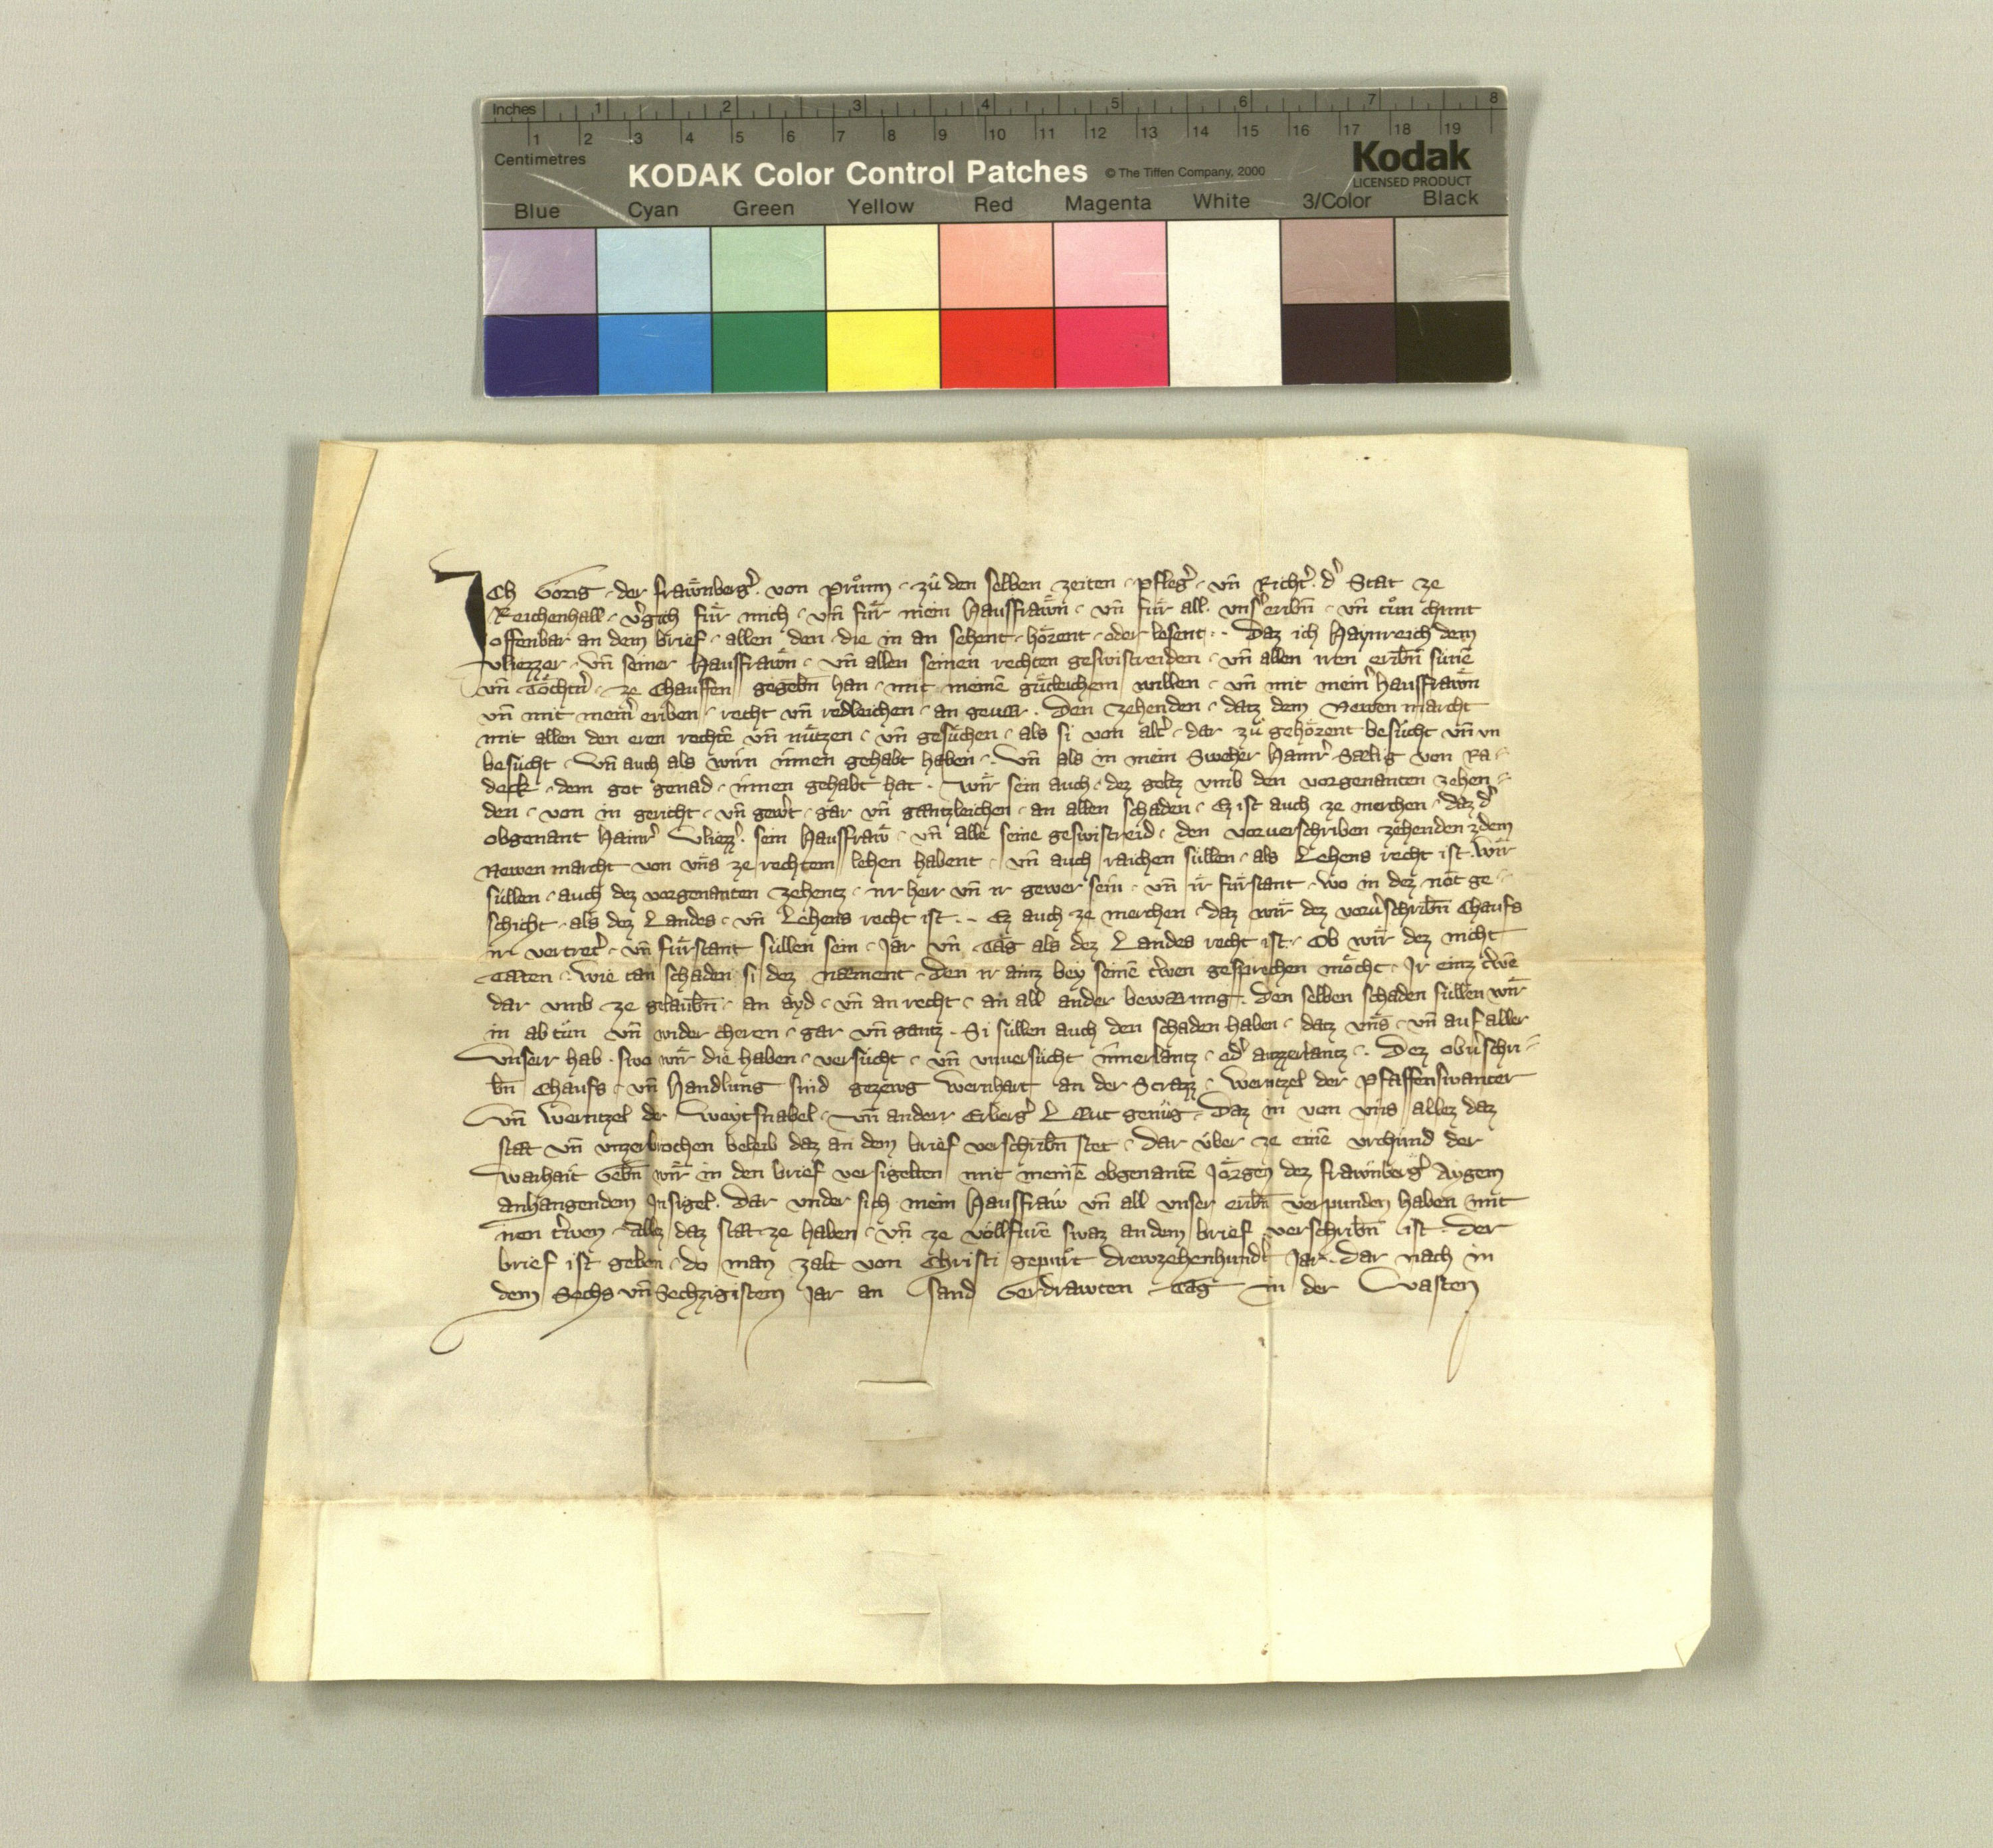 Inches 1 2 3 4 5 6 7 8
1 2 3 4 5 6 7 8 9 10 11 12 13 14 15 16 17 18 19
Centimetres
KODAK Color Control Patches © The Tiffen Company, 2000
Kodak
LICENSED PRODUCT
Blue Cyan Green Yellow Red Magenta White 3/Color Black
Ich Görig · der frawnberg͛ · von průnn · zů den selben zeiten · pfleg͛ · vn̄ Richt͛ · d͛ Stat ze
Reichenhall · v͛gich für mich · vn̄ für mein Hausfrawn · vn̄ für all · vns͛ eribn̄ · vn̄ tůn chunt
offenbar an dem brief · allen den · die in an sehent · hörent · oder lesent · Daz ich Haynreich dem
vliezzer · vn̄ seiner Hausfrawn · vn̄ allen seinen rechten geswistreiden · vn̄ allen iren eribn̄ sünē
vn̄ Töcht͛n · ze Chauffen gegebn̄ han · mit meinē gütleichem willen · vn̄ mit mein͛ hausfrawn
vn̄ mit mein͛ eriben · recht vn̄ redleichen · an geuar · Den zehenden · datz dem Newen marcht
mit allen den eren rechtē vn̄ nützen · vn̄ gesüchen · als si von alt͛ · dar zů gehörent besücht vn̄ vn
besücht · vn̄ auch als wirn innen gehabt haben · Vn̄ als in mein Sweher Hainr͛ Sælig von Ra-
deck · dem got genad · innen gehabt hat · Wir sein auch · dez geltz vmb den vorgenanten zehen-
den · von in gericht · vn̄ gewert · gar vn̄ gæntzleichen · an allen schaden · Ez ist auch ze merchen · daz d͛
obgenant Hainr͛ Vliezz͛ · sein Hausfraw · vn̄ alle seine geswistreid · den vorverschriben zehenden zdem
Newen marcht von vns ze rechtem lehen habent · vn̄ auch raichen süllen · als Lehens recht ist · Wir
süllen · auch dez vorgenanten zehentz · irr herr vn̄ ir gewer sein · vn̄ ir fürstant · wo in dez not ge-
schicht · als dez Landes · vn̄ Lehens recht ist · Ez auch ze merchen · daz wir dez vorv͛schribn̄ Chaufs
ir vertret͛ · vn̄ fürstant süllen sein · Jar vn̄ Tag als dez Landes recht ist · Ob wir dez nicht
Tæten · Wie tan schaden si dez næment · Den ir ainz bey seinē t͛wen gesprechen möcht · Ir einz t͛wē
dar vmb ze gelaubn̄ · an ayd · vn̄ an recht · an all ander bewarung · Den selben schaden süllen wir
in ab tün vn̄ wider cheren · gar vn̄ gantz · Si süllen auch den schaden haben · datz vns · vn̄ auf aller
Vnserr hab · swo wir die haben · versücht · vn̄ vnuersücht innerlantz · od͛ auzzerlantz · Dez obv͛schri-
bn̄ Chaufs · vn̄ Handlung sind gezewg Wernhart an der Strazz · Werntzel der Pfaffenswanter
Vn̄ Werntzel der Weytsnabel · Vn̄ anderr Erberg͛ Læut genüg · Daz in von vns allez daz
stæt vn̄ vnzerbrochen beleib daz an dem brief verschribn̄ stet · Dar über ze einē vrchünd der
Warhait Gebn̄ wir in den brief versigelten mit meinē obgenantē Jörgen dez frawnberg͛ Aygem
anhangendem Insigel · Dar vnder sich mein Hausfraw vn̄ all vnser eribn̄ verpunden haben mit
iren t͛wen · Allez daz stæt ze haben · vn̄ ze volfürē swaz an dem brief verschribn̄ ist · Der
brief ist geben · do man zalt von Christi gepurt Drewzehenhund͛t Jar · Dar nach in
dem Sechs vn̄ Sechzigistem Jar an Sand Gerdrawten Tag in der Vasten